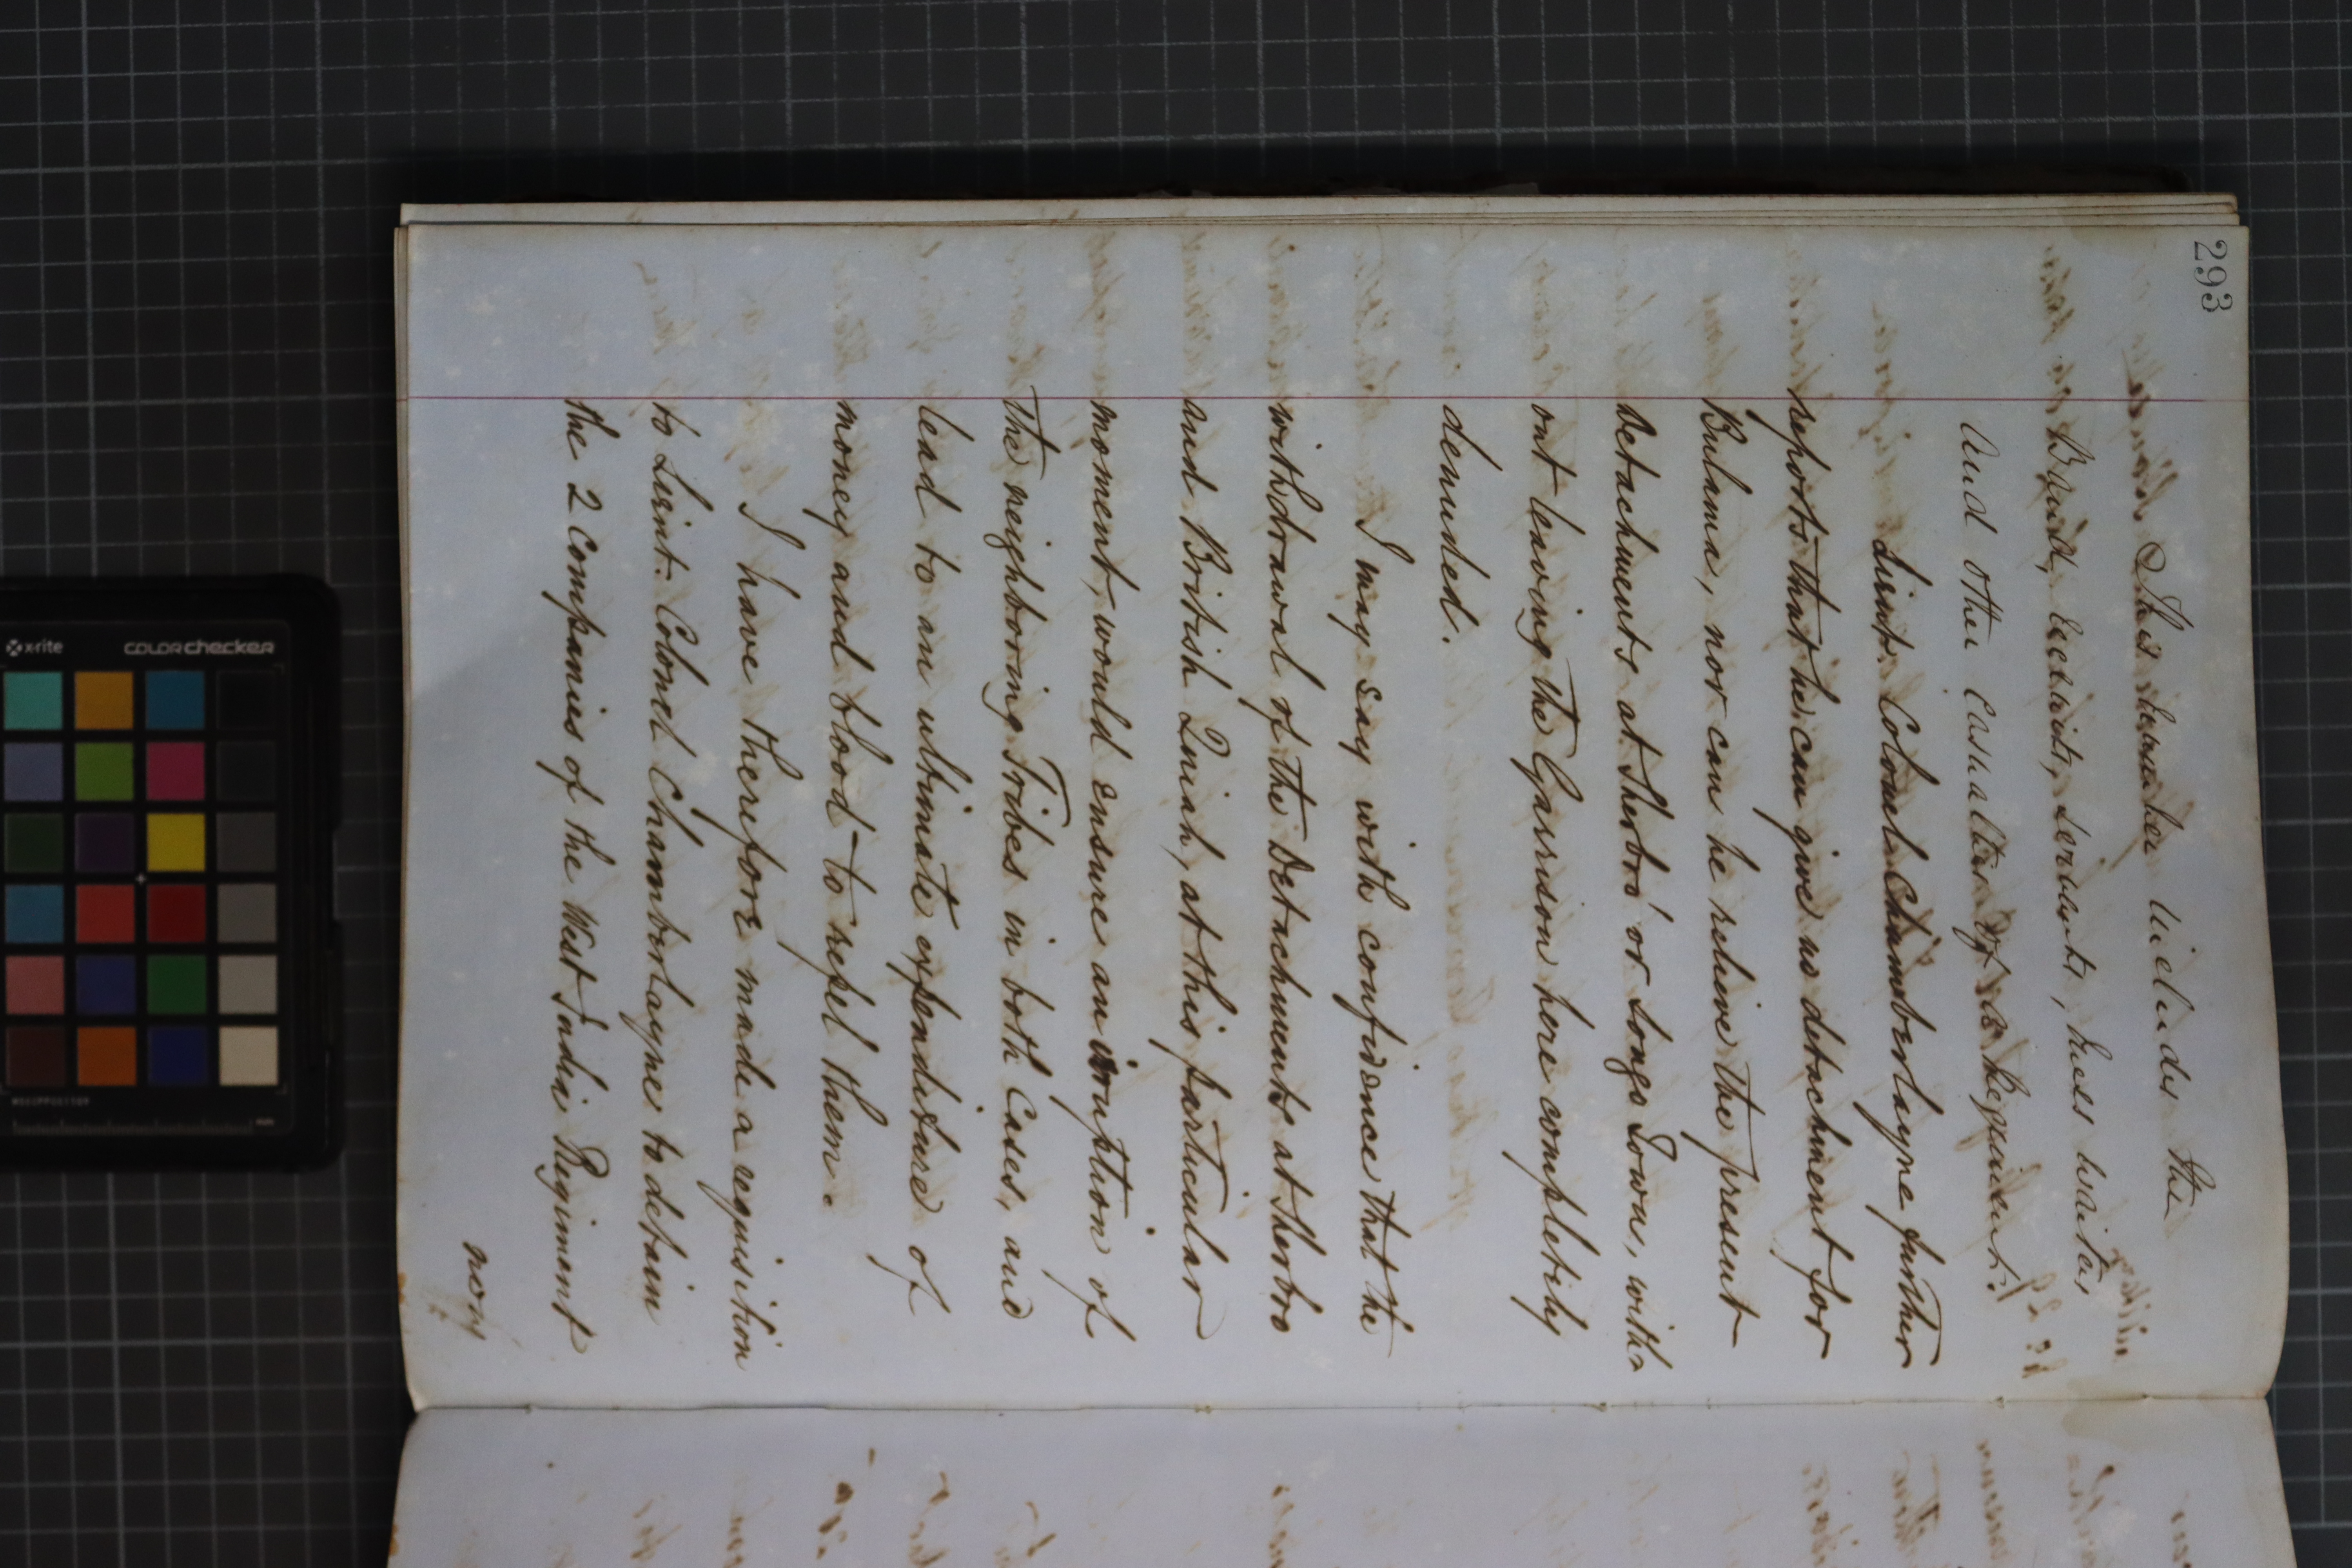 293
This number includes the
Band, Recruits, servants, Mess waiters,
and other casualties of a Regiment.
Lieut. Colonel Chamberlayne further
reports that he can give no detachment for
Bulama, nor can he relieve the present
detachments at Sherbro' or Songo Town, with-
out leaving the Garrison here completely
denuded.
I may say with confidence that the
withdrawal of the Detachments at Sherbro
and British Quiah, at this particular
moment, would ensure an irruption of
the neighboring Tribes in both cases, and
lead to an ultimate expenditure of
money and blood to repel them.
I have therefore made a requisition
to Lieut. Colonel Chamberlayne to detain
the 2 Companies of the West India Regiment
now
x-rite
colorchecker